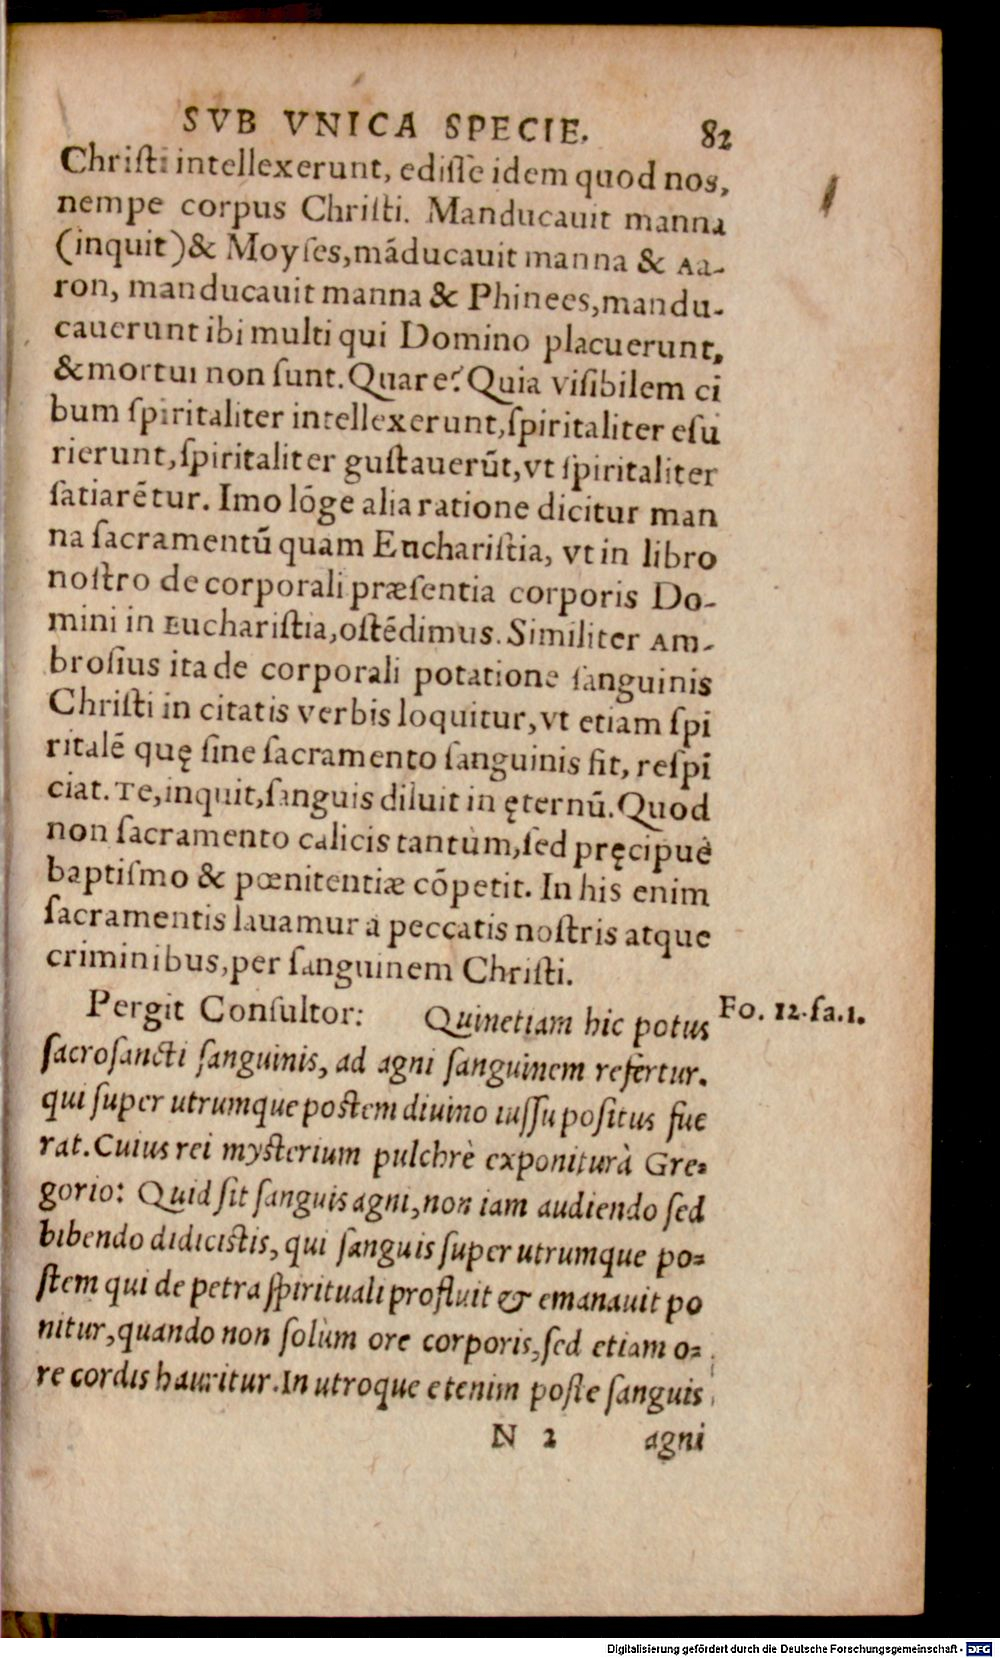 SVB VNICA SPECIE. 82
Chriſti intellexerunt, ediſſe idem quod nos,
nempe corpus Chriſti. Manducauit manna
(inquit)& Moyſes, mãducauit manna & Aa-
ron, manducauit manna & Phinees, mandu-
cauerunt ibi multi qui Domino placuerunt,
& mortui non ſunt. Quare? Quia viſibilem ci
bum ſpiritaliter intellexerunt, ſpiritaliter eſu
rierunt, ſpiritaliter guſtauerũt, vt ſpiritaliter
ſatiarẽtur. Imo lõge alia ratione dicitur man
na ſacramentũ quam Euchariſtia, vt in libro
noſtro de corporali præſentia corporis Do-
mini in Euchariſtia, oſtẽdimus. Similiter Am-
broſius ita de corporali potatione ſanguinis
Chriſti in citatis verbis loquitur, vt etiam ſpi
ritalẽ quę ſine ſacramento ſanguinis fit, reſpi
ciat. Te, inquit, ſanguis diluit in ęternũ. Quod
non ſacramento calicis tantùm, ſed pręcipuè
baptiſmo & pœnitentiæ cõpetit. In his enim
ſacramentis lauamur à peccatis noſtris atque
criminibus, per ſanguinem Chriſti.
Pergit Conſultor: Quinetiam hic potus
Fo. 12. fa. 1.
ſacroſancti ſanguinis, ad agni ſanguinem refertur.
qui ſuper utrumque poſtem diuino iuſſu poſitus fue
rat. Cuius rei myſterium pulchrè exponitur à Gre-
gorio: Quid ſit ſanguis agni, non iam audiendo ſed
bibendo didiciſtis, qui ſanguis ſuper utrumque po-
ſtem qui de petra ſpirituali profluit & emanauit po
nitur, quando non ſolùm ore corporis, ſed etiam o-
re cordis hauritur. In utroque etenim poſte ſanguis
N 2 agni
Digitalisierung gefördert durch die Deutsche Forschungsgemeinschaft - DFG